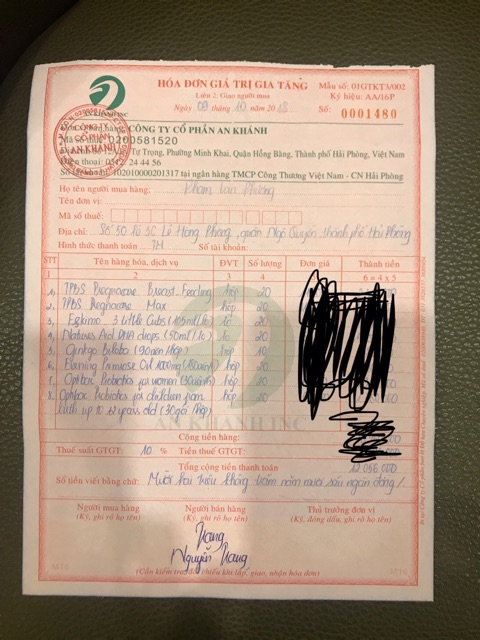 HÓA ĐƠN GIÁ TRỊ GIA TĂNG
Liên 2: Giao người mua
Ngày 09 tháng 10 năm 2018
Mẫu số: 01GTKT3/002
Ký hiệu: AA/16P
Số: 0001480
AN KHANH INC
Đơn vị bán hàng: CÔNG TY CỔ PHẦN AN KHÁNH
Mã số thuế: 0200581520
Tự Trọng, Phường Minh Khai, Quận Hồng Bàng, Thành phố Hải Phòng, Việt Nam
Điện thoại: 24 44 56
Số tài khoản: 102010000201317 tại ngân hàng TMCP Công Thương Việt Nam - CN Hải Phòng
Họ tên người mua hàng: Phạm Lan Phương
Tên đơn vị:
Mã số thuế:
Địa chỉ: Số 30 lô 3C Lê Hồng Phong, quận Ngô Quyền, thành phố Hải Phòng
Hình thức thanh toán: TM Số tài khoản:
STT Tên hàng hóa, dịch vụ ĐVT Số lượng Đơn giá Thành tiền
1 2 3 4 6 = 4 x 5
1. Pregnacare Breast Feeding hộp 20
2. Pregnacare Max hộp 20
3. Eskimo 3 Little Cubs (105ml/lọ) lọ 20
4. Natures Aid DHA drops (50ml/lọ) lọ 20
5. Ginkgo Biloba (90 viên/hộp) hộp 10
6. Evening Primrose Oil hộp 20
7. Probiotics for women (30 viên) hộp 20
8. Probiotics for children from hộp 20
birth up to 12 years old (30 gói/hộp)
AN KHANH INC
Cộng tiền hàng:
Thuế suất GTGT: 10 % Tiền thuế GTGT:
Tổng cộng tiền thanh toán 12.056.000
Số tiền viết bằng chữ: Mười hai triệu không trăm năm mươi sáu ngàn đồng /
Người mua hàng Người bán hàng Thủ trưởng đơn vị
(Ký, ghi rõ họ tên) (Ký, ghi rõ họ tên) (Ký, đóng dấu, ghi rõ họ tên)
Nguyễn Trang
(Cần kiểm tra, đối chiếu khi lập, giao, nhận hóa đơn)